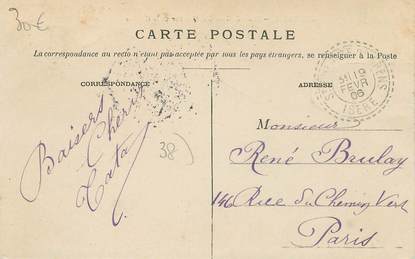 30€
CARTE POSTALE
La correspondance au recto n'étant pas acceptée par tous les pays étrangers, se renseigner à la Poste
CORRESPONDANCE
ADRESSE
19
FEVR
06
ISERE
Baisers
Chéri
Tata
38)
Monsieur
René Brulay
146 Rue du Chemin Vert
Paris